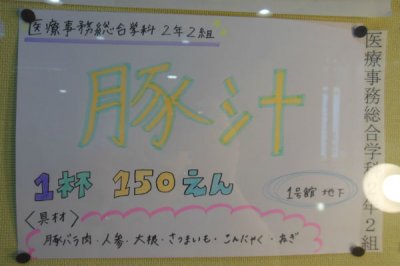 医療事務総合学科 2年2組
豚汁
1杯 150えん
1号館 地下
〈具材〉
豚バラ肉・人参・大根・さつまいも・こんにゃく・ねぎ
医療事務総合学科2年2組